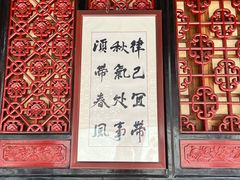 律己宜帶
秋氣处事
須帶春風